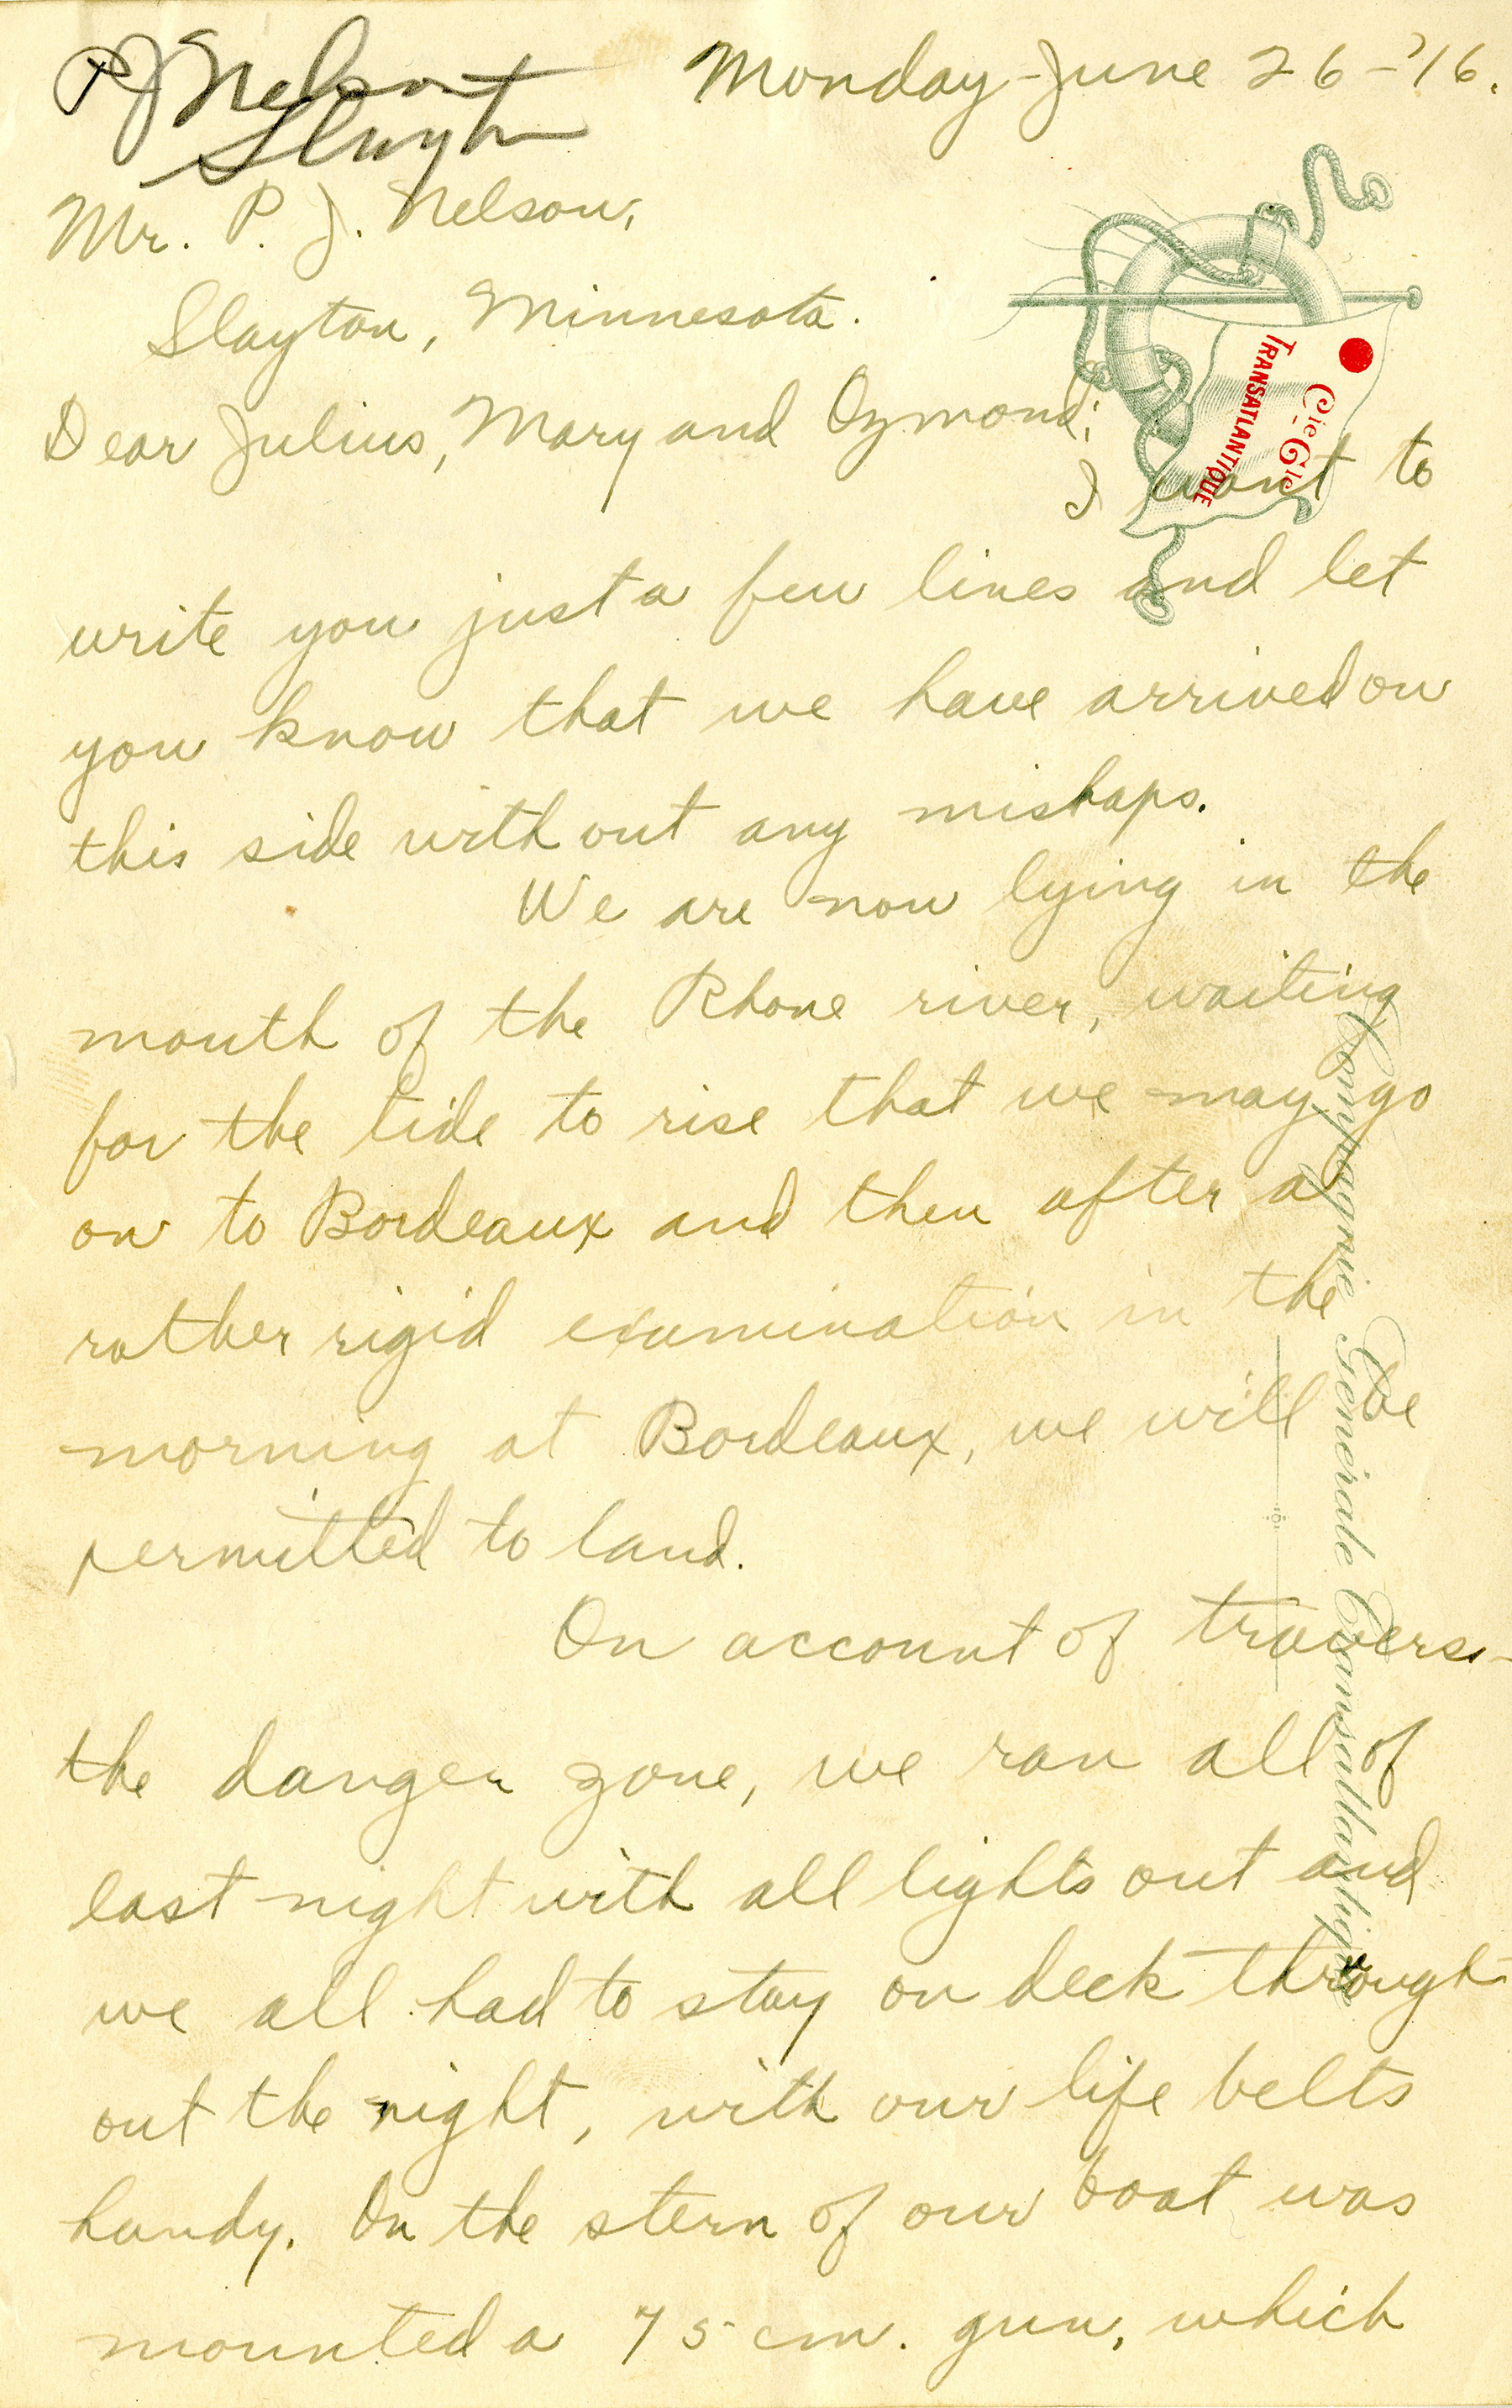 P J Nelson
Slayton
Monday-June 26-'16.
Mr. P. J. Nelson,
Slayton, Minnesota.
Cie Gle
TRANSATLANTIQUE
Dear Julius, Mary and Ozmond;
I want to
write you just a few lines and let
you know that we have arrived on
this side without any mishaps.
We are now lying in the
mouth of the Rhone river, waiting
for the tide to rise that we may go
on to Bordeaux and then after a
rather rigid examination in the
morning at Bordeaux, we will be
permitted to land.
On account of travers-
the danger zone, we ran all of
last night with all lights out and
we all had to stay on deck through
out the night, with our life belts
handy. On the stern of our boat was
mounted a 75 cm. gun, which
Compagnie Générale Transatlantique